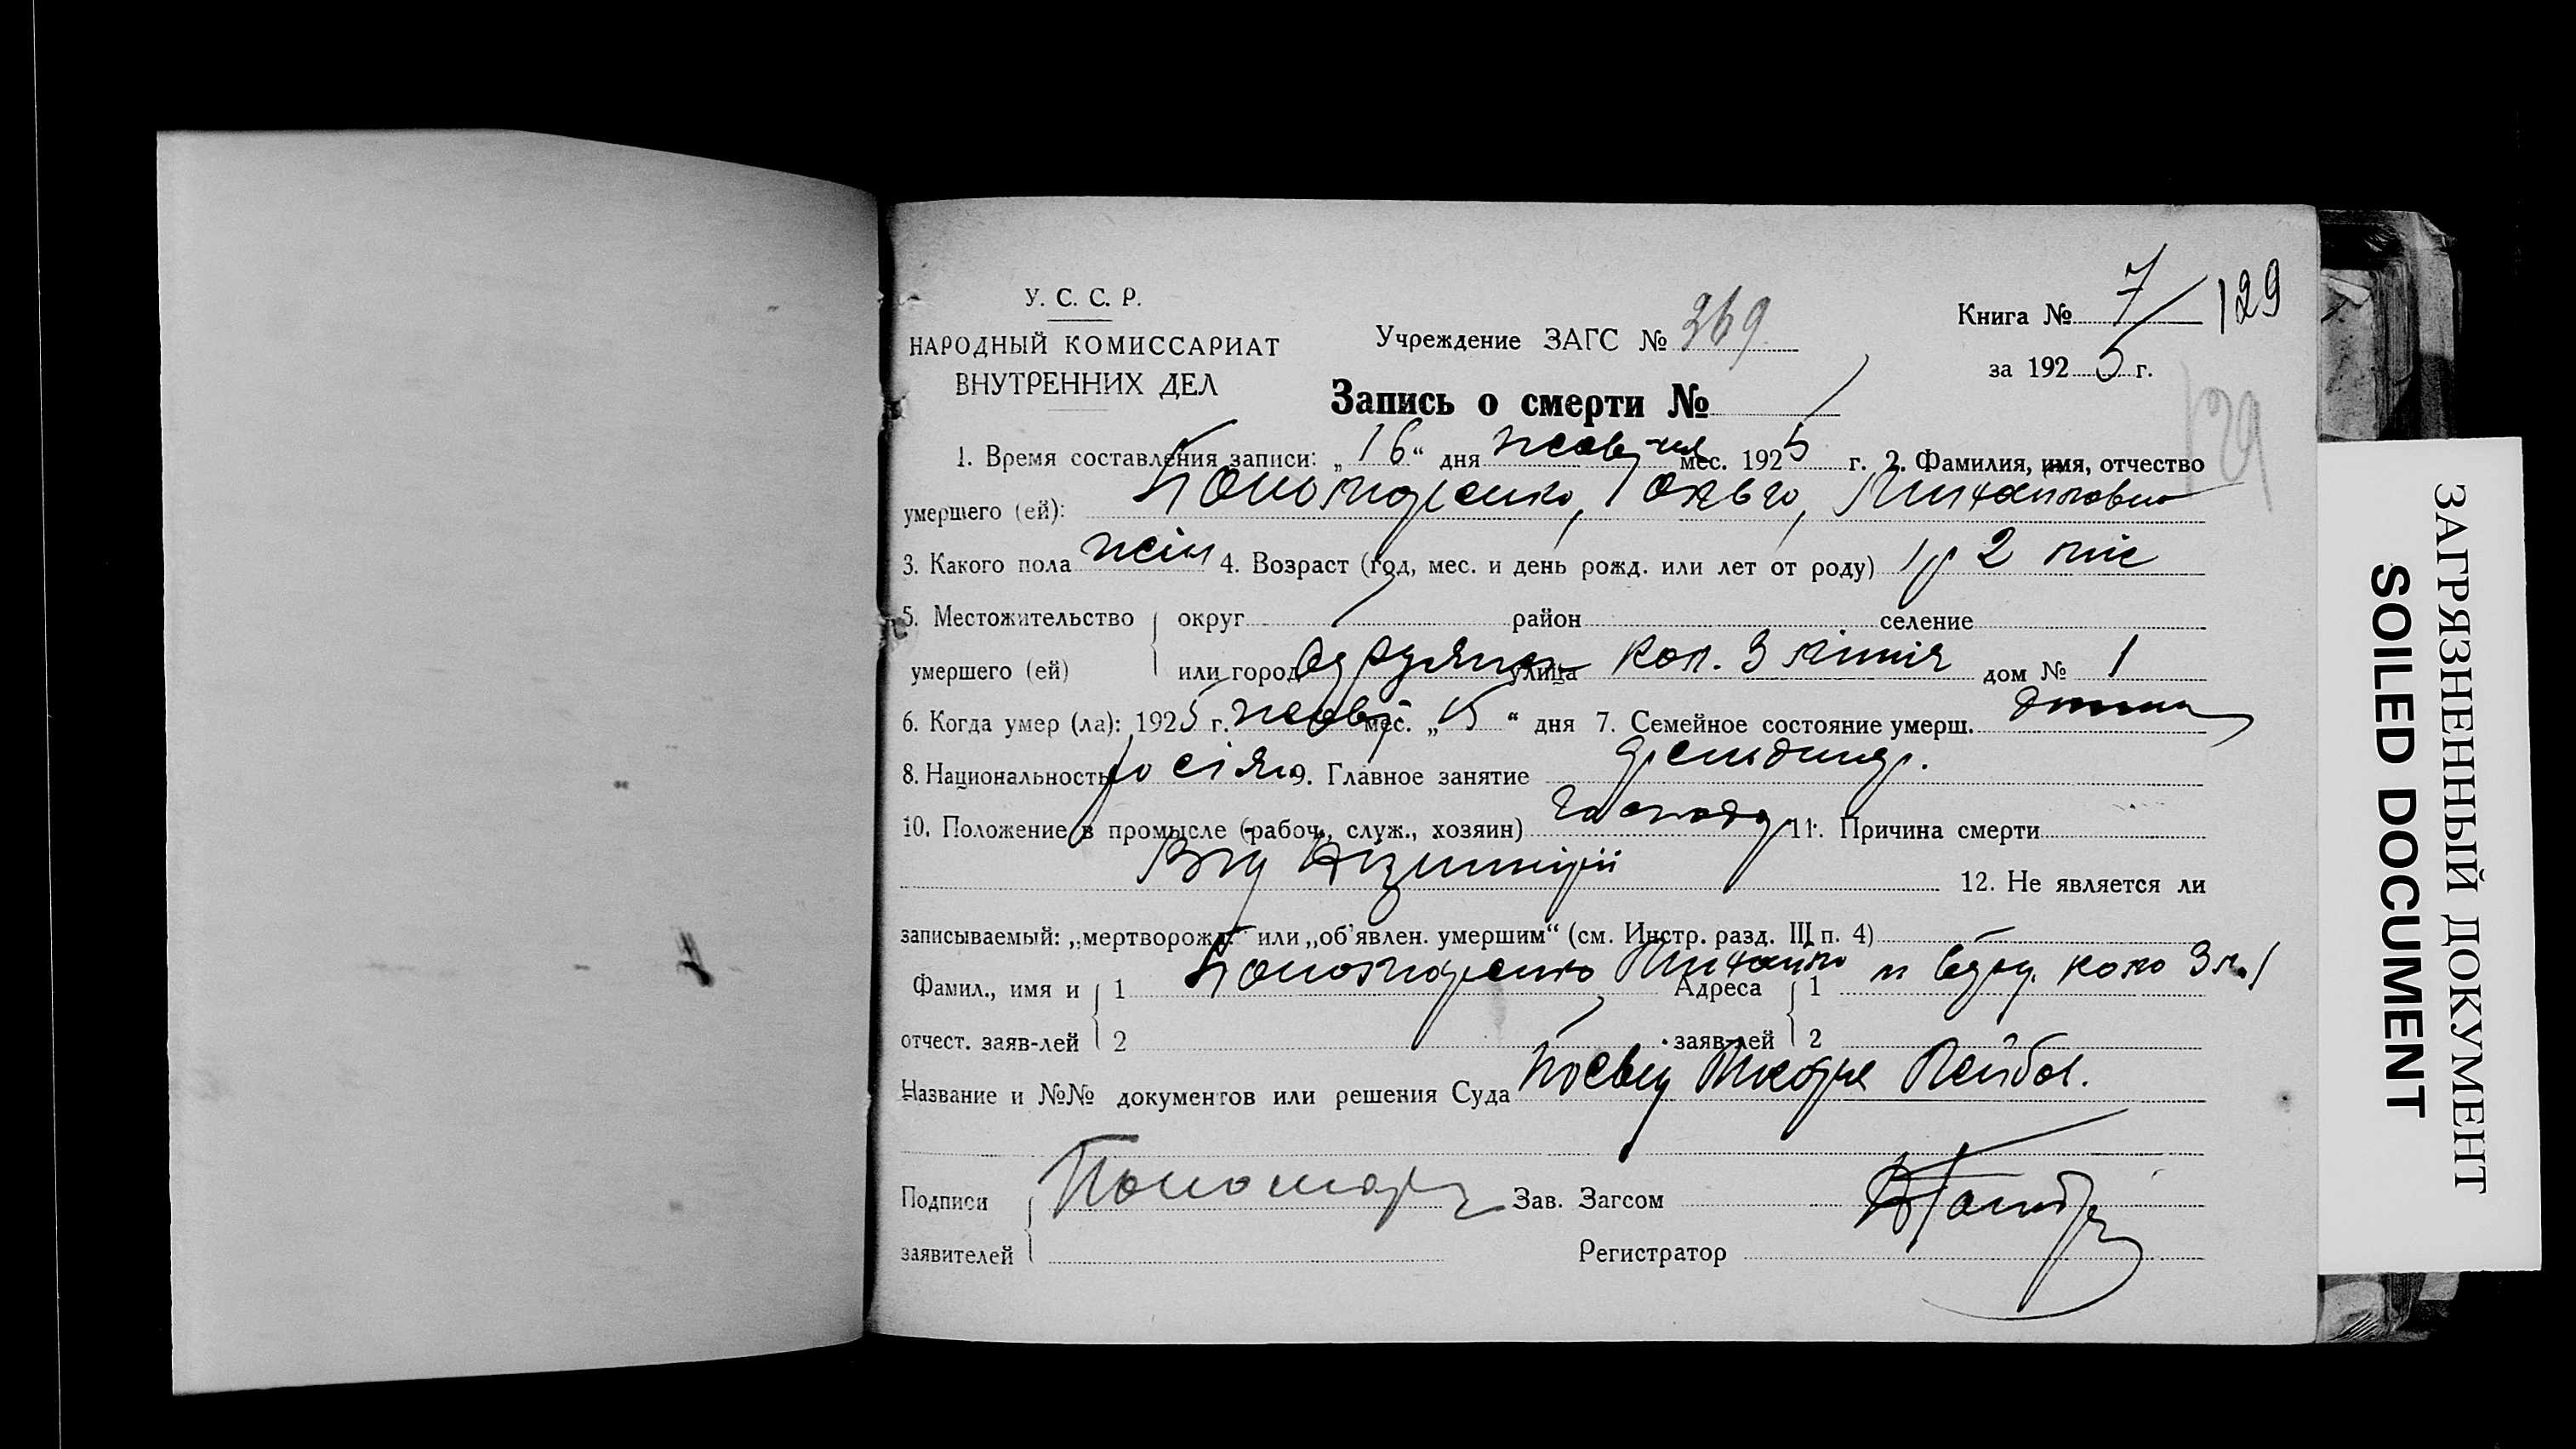 У. С. С. Р.
НАРОДНЫЙ КОМИССАРИАТ
ВНУТРЕННИХ ДЕЛ
Учреждение ЗАГС № 369
Книга № 7 129
за 1925 г.
129
Запись о смерти №
1. Время составления записи: „16“ дня жовтня мес. 1925 г. 2. Фамилия, имя, отчество
умершего (ей): Пономаренко, Ольга, Михайловна
3. Какого пола жін 4. Возраст (год, мес. и день рожд. или лет от роду) 1 р 2 міс
5. Местожительство округ район селение
умершего (ей) или город улица кол. 3 лінія дом № 1
6. Когда умер (ла): 1925 г. жовт мес. „15“ дня 7. Семейное состояние умерш. дитина
8. Национальность 9. Главное занятие
10. Положение в промысле (рабоч., служ., хозяин) 11. Причина смерти
Від Дізинтерії
12. Не является ли
записываемый: „мертворожд.“ или „об’явлен. умершим“ (см. Инстр. разд. III п. 4)
Фамил., имя и 1 Пономаренко Михайло Адреса 1 кол 3 л. 1
отчест. заяв-лей 2 заяв-лей 2
Название и №№ документов или решения Суда
Подписи Зав. Загсом
заявителей Регистратор
ЗАГРЯЗНЕННЫЙ ДОКУМЕНТ
SOILED DOCUMENT